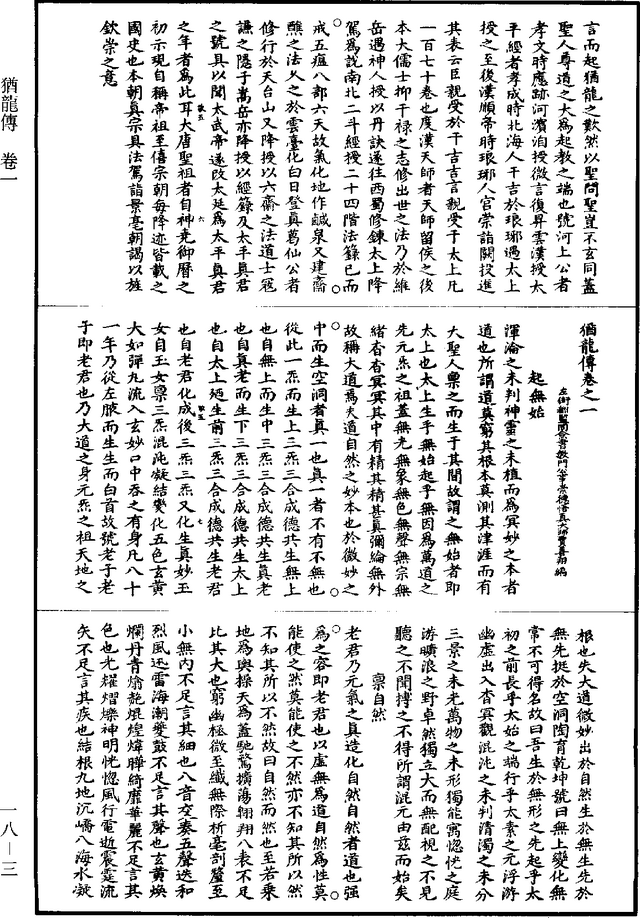 猶龍傳 卷一
一八—三
言而起猶龍之歎然以聖問聖豈不玄同蓋
聖人尊道之大為起教之端也號河上公者
孝文時應跡河濱洎授微言復昇雲漢授太
平經者孝成時北海人干吉於琅琊遇太上
授之至後漢順帝時琅琊人宮崇詣闕投進
其表云臣親受於干吉吉言親受于太上凡
一百七十卷也度漢天師者天師留侯之後
本大儒士抑干祿之志修出世之法乃於維
岳遇神人授以丹訣遂往西蜀修鍊太上降
駕為說南北二斗經授二十四階法籙已而
戒五瘟八部六天故氣化地作鹹泉又建齋
醮之法久之於雲臺化白日登真葛仙公者
修行於天台山又降授以六齋之法道士寇
謙之隱于嵩岳亦降授以經籙及太平真君
之號具以聞太武帝遂改太延為太平真君
之年者為此耳大唐聖祖者自神堯御曆之
初示現自稱帝祖至僖宗朝每降迹皆載之
國史也本朝真宗具法駕詣景亳朝謁以旌
欽崇之意
猶龍傳卷之一
起無始
渾淪之未判神靈之未植而為冥妙之本者
道也所謂道莫窮其根本莫測其津涯而有
大聖人稟之而生于其間故謂之無始者即
太上也太上生乎無始起乎無因為萬道之
先元炁之祖蓋無光無象無色無聲無宗無
緒杳杳冥冥其中有精其精甚真彌綸無外
故稱大道為夫道自然之妙本也於微妙之
中而生空洞者真一也真一者不有不無也
從此一炁而生上三炁三合成德共生無上
也自無上而生中三炁三合成德共生真老
也自真老而生下三炁三合成德共生太上
也自太上炁生前三炁三合成德共生老君
也自老君化成後三炁三炁又化生真妙玉
女自玉女稟三炁混沌凝結變化五色玄黃
大如彈丸流入玄妙口中吞之有身凡八十
一年乃從左腋而生生而白首故號老子老
子即老君也乃大道之身元炁之祖天地之
根也夫大道微妙出於自然生於無生先於
無先挺於空洞陶育乾坤號曰無上變化無
常不可得名故曰吾生於無形之先起乎太
初之前長乎太始之端行乎太素之元浮游
幽虛出入杳冥觀混沌之未判清濁之未分
三景之未光萬物之未形獨能寓惚恍之庭
游曠浪之野卓然獨立大而無配視之不見
聽之不聞搏之不得所謂混元由茲而始矣
稟自然
老君乃元氣之真造化自然自然者道也强
為之容即老君也以虛無為道自然為性莫
能使之然莫能使之不然亦不知其所以然
不知其所以不然故曰自然而然也至若乘
地為輿操天為蓋馳騖擴蕩翱翔八表不足
比其大也窮幽極微至纖無際析毫剖釐至
小無內不足言其細也八音交奏五聲迭和
烈風迅雷海潮夔鼓不足言其聲也玄黃煥
爛丹青煒煌焜煌煒曄綺靡華麗不足言其
色也光耀熠爍神明恍惚風行電逝震霆流
矢不足言其疾也結根九地沉嶠八海水凝